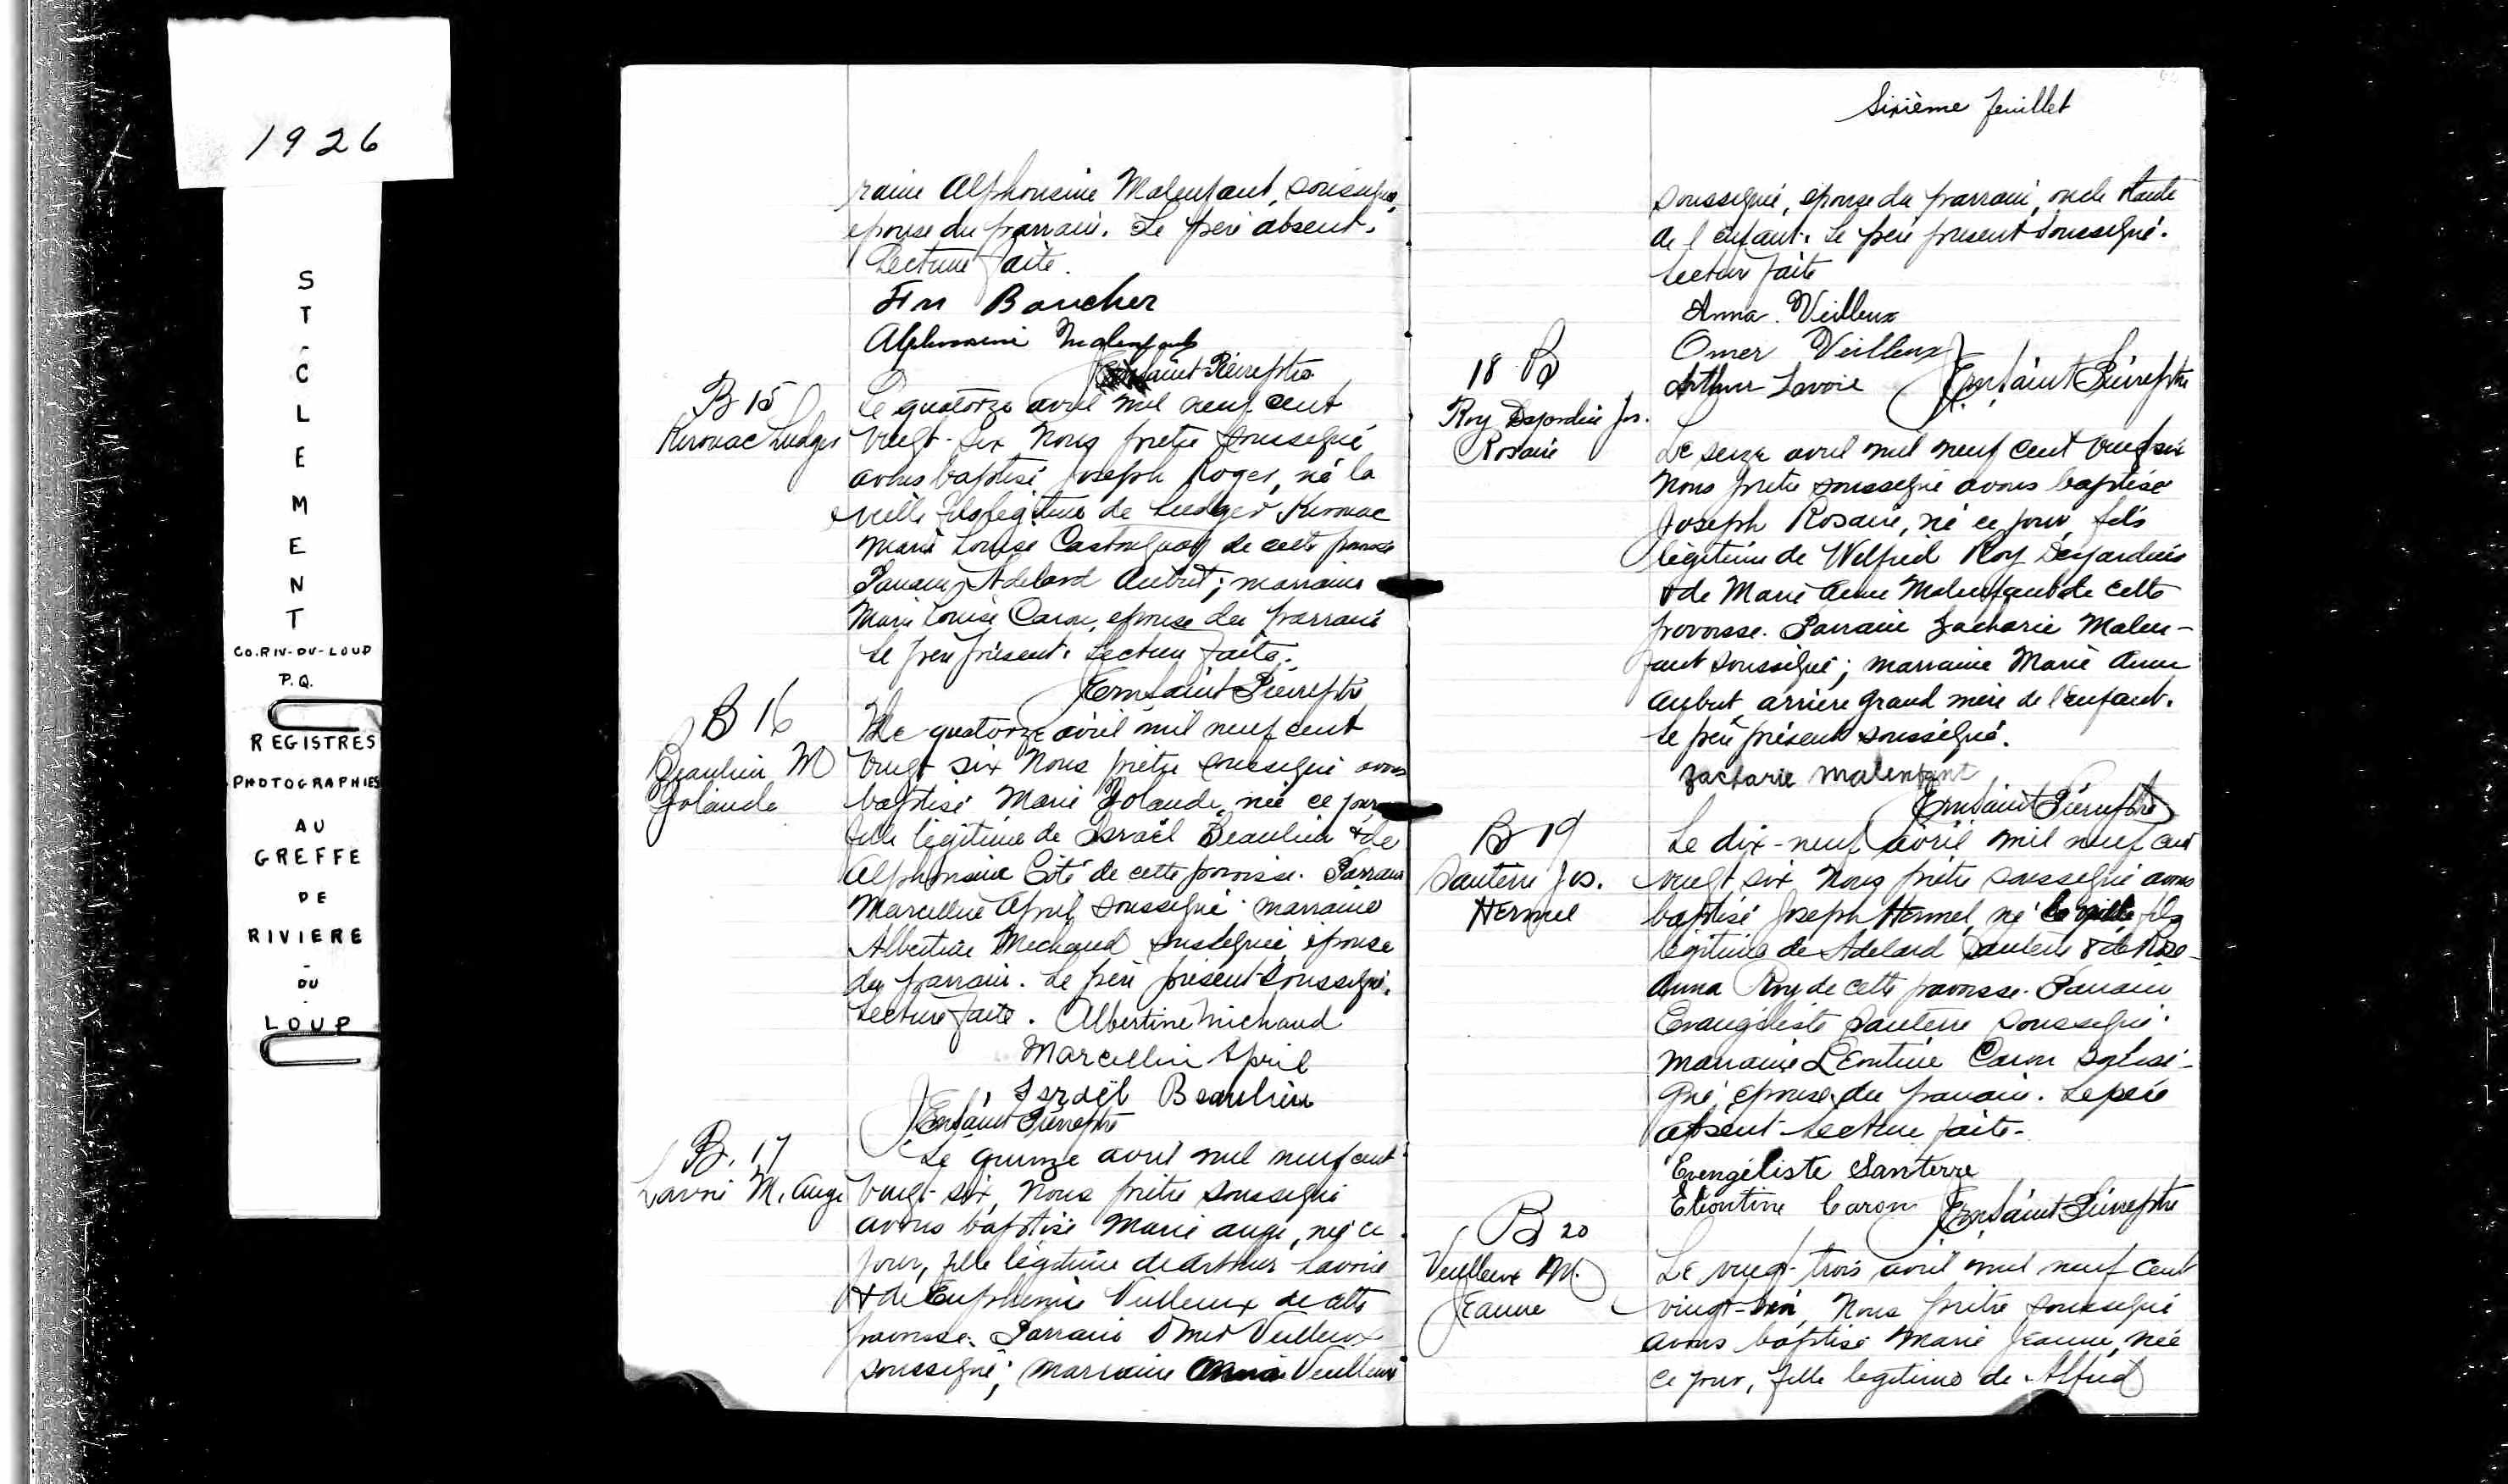 1926
ST-CLEMENT
CO. RIV-DU-LOUP
P.Q.
REGISTRES
PHOTOGRAPHIES
AU
GREFFE
DE
RIVIERE
-
DU
-
LOUP
raine Alphonsine Malenfant, soussignée,
epouse du parrain. Le père absent.
Lecture faite.
Boucher
Alphonsine Malenfant
Saint Pierre ptre
B 15
Kerouac Ludger
Le quatorze avril mil neuf cent
vingt-six Nous prêtre soussigné
avons baptisé Joseph Roger, né la
veille fils légitime de Ludger Kerouac
Marie Louise Castonguay de cette paroisse
Parrain Adelard Aubut; marraine
Marie Louise Caron, epouse du parrain
Le père présent. Lecture faite.
J Ern Saint Pierre ptre
B 16
Beaulieu M
Yolande
Le quatorze avril mil neuf cent
vingt six Nous prêtre soussigné avons
baptisé Marie Yolande, née ce jour
fille légitime de Israël Beaulieu & de
Alphonsine Côté de cette paroisse. Parrain
Marcellin April soussigné marraine
Albertine Michaud soussignée épouse
du parrain. Le père présent soussigné.
Lecture faite. Albertine Michaud
Marcellin April
Israël Beaulieu
J Ern Saint Pierre ptre
B. 17
Lavoie M. Ange
Le quinze avril mil neuf cent
vingt-six, Nous prêtre soussigné
avons baptisé Marie Ange, née ce
jour, fille légitime de Arthur Lavoie
& de Euphémie Veilleux de cette
paroisse. Parrain Omer Veilleux
soussigné; marraine Anna Veilleux
Sixième feuillet
soussignée, épouse du parrain, oncle & tante
de l'enfant. Le père présent soussigné.
Lecture faite
Anna Veilleux
Omer Veilleux
Arthur Lavoie J Ern Saint Pierre ptre
18 B
Roy Desjardins Jos.
Rosaire
Le seize avril mil neuf cent vingt six
Nous prêtre soussigné avons baptisé
Joseph Rosaire, né ce jour, fils
légitime de Wilfrid Roy Desjardins
& de Marie Anne Malenfant de cette
paroisse. Parrain Zacharie Malen-
fant soussigné; marraine Marie Anne
Aubut, arrière grand mère de l'enfant.
Le père présent soussigné.
Zacharie Malenfant
J Ern Saint Pierre ptre
B 19
Santerre Jos.
Hermel
Le dix-neuf avril mil neuf cent
vingt six Nous prêtre soussigné avons
baptisé Joseph Hermel, né la veille, fils
légitime de Adelard Santerre & de Rose-
Anna Roy de cette paroisse. Parrain
Evangéliste Santerre soussigné.
Marraine Léontine Caron soussi-
gné, épouse du parrain. Le père
absent. Lecture faite.
Evengéliste Santerre
Eléontine Caron J Ern Saint Pierre ptre
B 20
Veilleux M.
Jeanne
Le vingt-trois avril mil neuf cent
vingt-six, Nous prêtre soussigné
avons baptisé Marie Jeanne, née
ce jour, fille légitime de Alfred